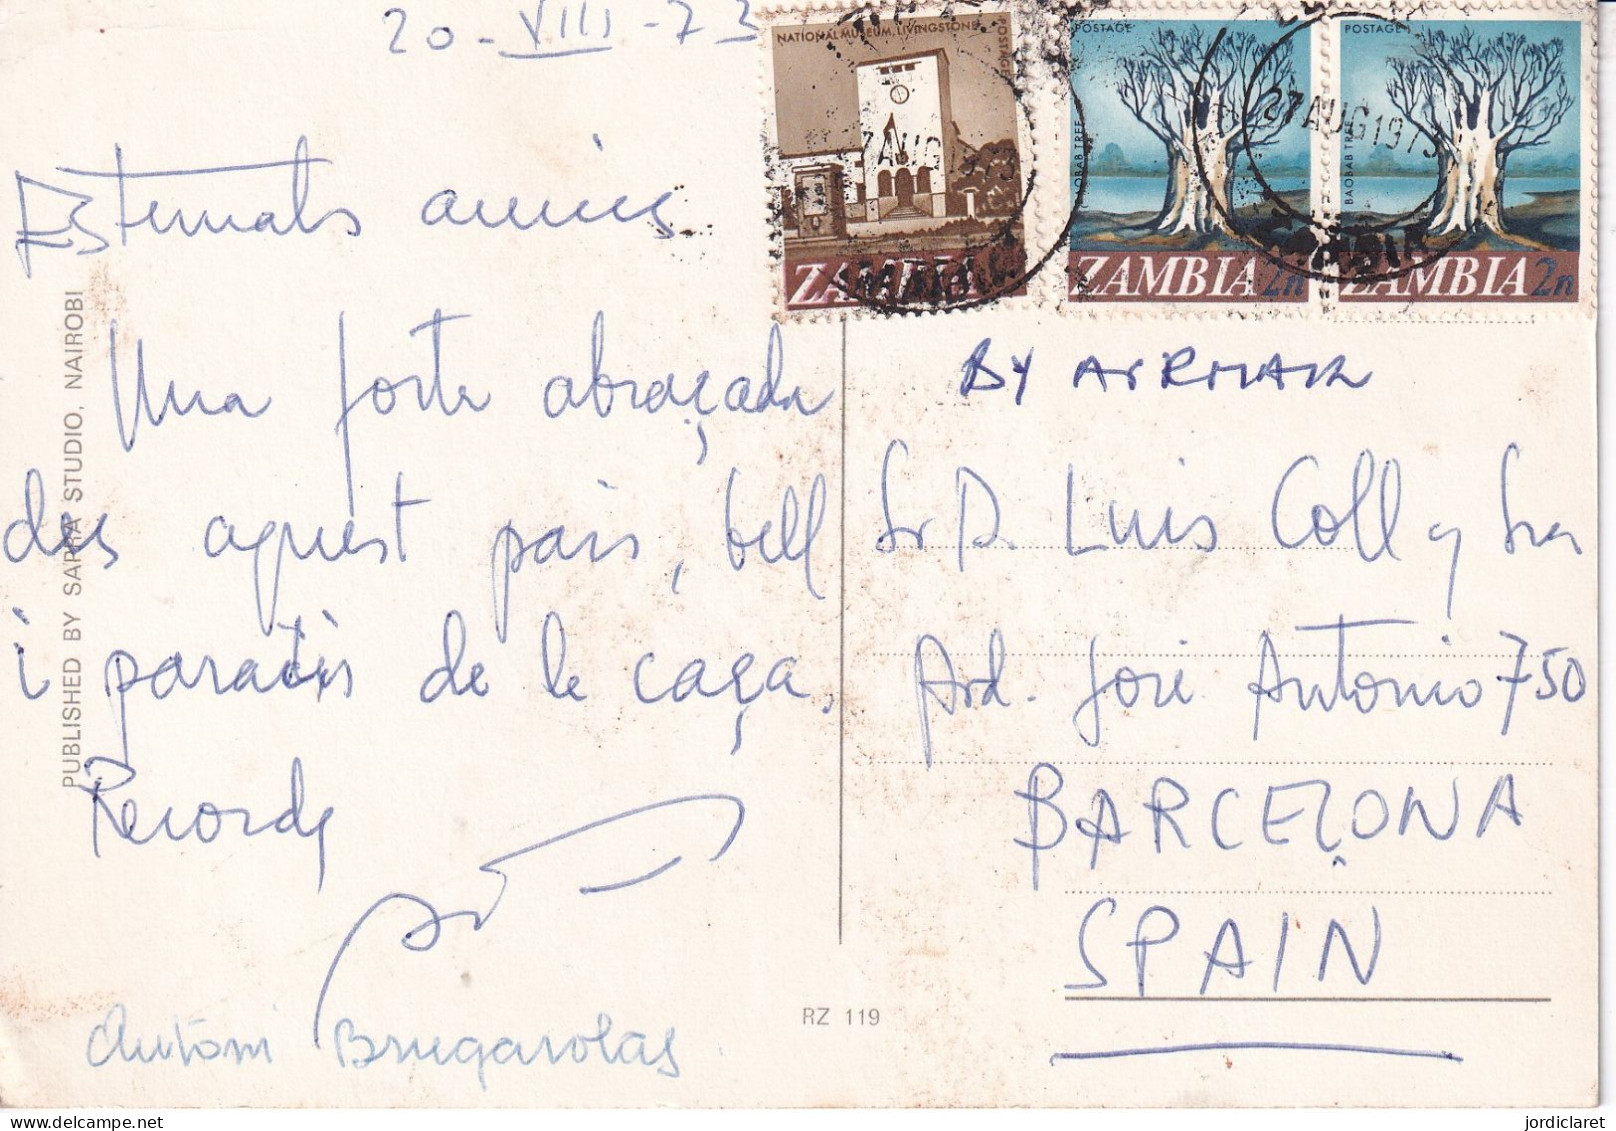 20-VIII-73
Estimats amics
Una forta abraçada
des aquest pais, bell
i paradis de la caça.
Records
Antoni Brugarolas
PUBLISHED BY SAPRA STUDIO, NAIROBI
RZ 119
NATIONAL MUSEUM, LIVINGSTONE
POSTAGE
ZAMBIA
7 AUG 1973
POSTAGE
BAOBAB TREE
ZAMBIA 2n
27 AUG 1973
POSTAGE
BAOBAB TREE
ZAMBIA 2n
BY AIRMAIL
Sr D. Luis Coll y Sra
Avd. José Antonio 750
BARCELONA
SPAIN
jordiclaret